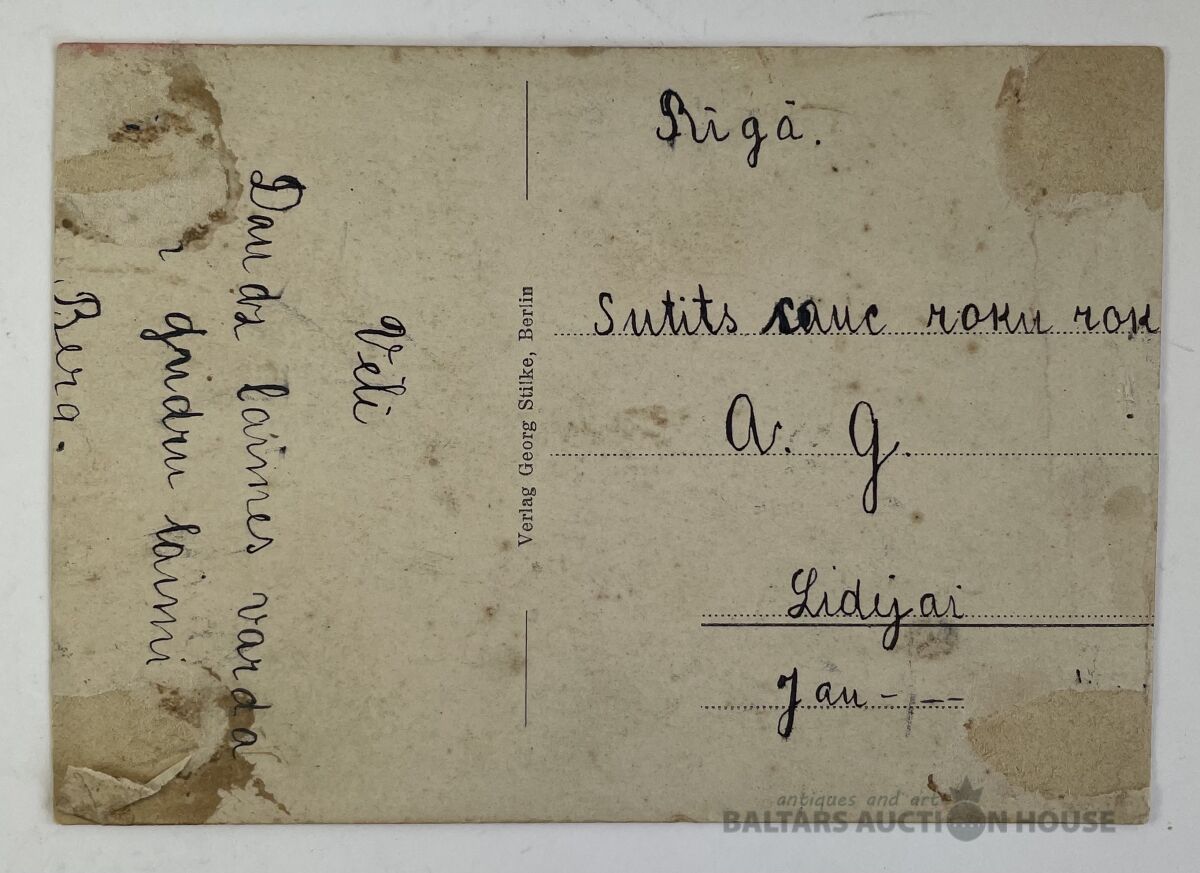 Rīgā.
Sutits sauc roku rok
A. G.
Lidijai
Jau - - -
Verlag Georg Stilke, Berlin
Vēli
Daudz laimes varda
gudru laimi
Berg.
antiques and art
BALTARS AUCTION HOUSE